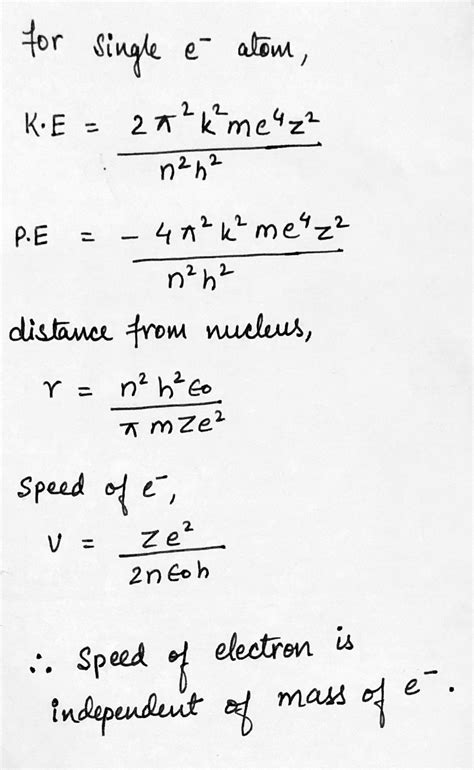 for single e⁻ atom,
K.E = 2π²k²me⁴z²
n²h²
P.E = - 4π²k²me⁴z²
n²h²
distance from nucleus,
r = n²h²ϵ₀
πmZe²
Speed of e⁻,
v = Ze²
2nϵ₀h
∴ Speed of electron is
independent of mass of e⁻.